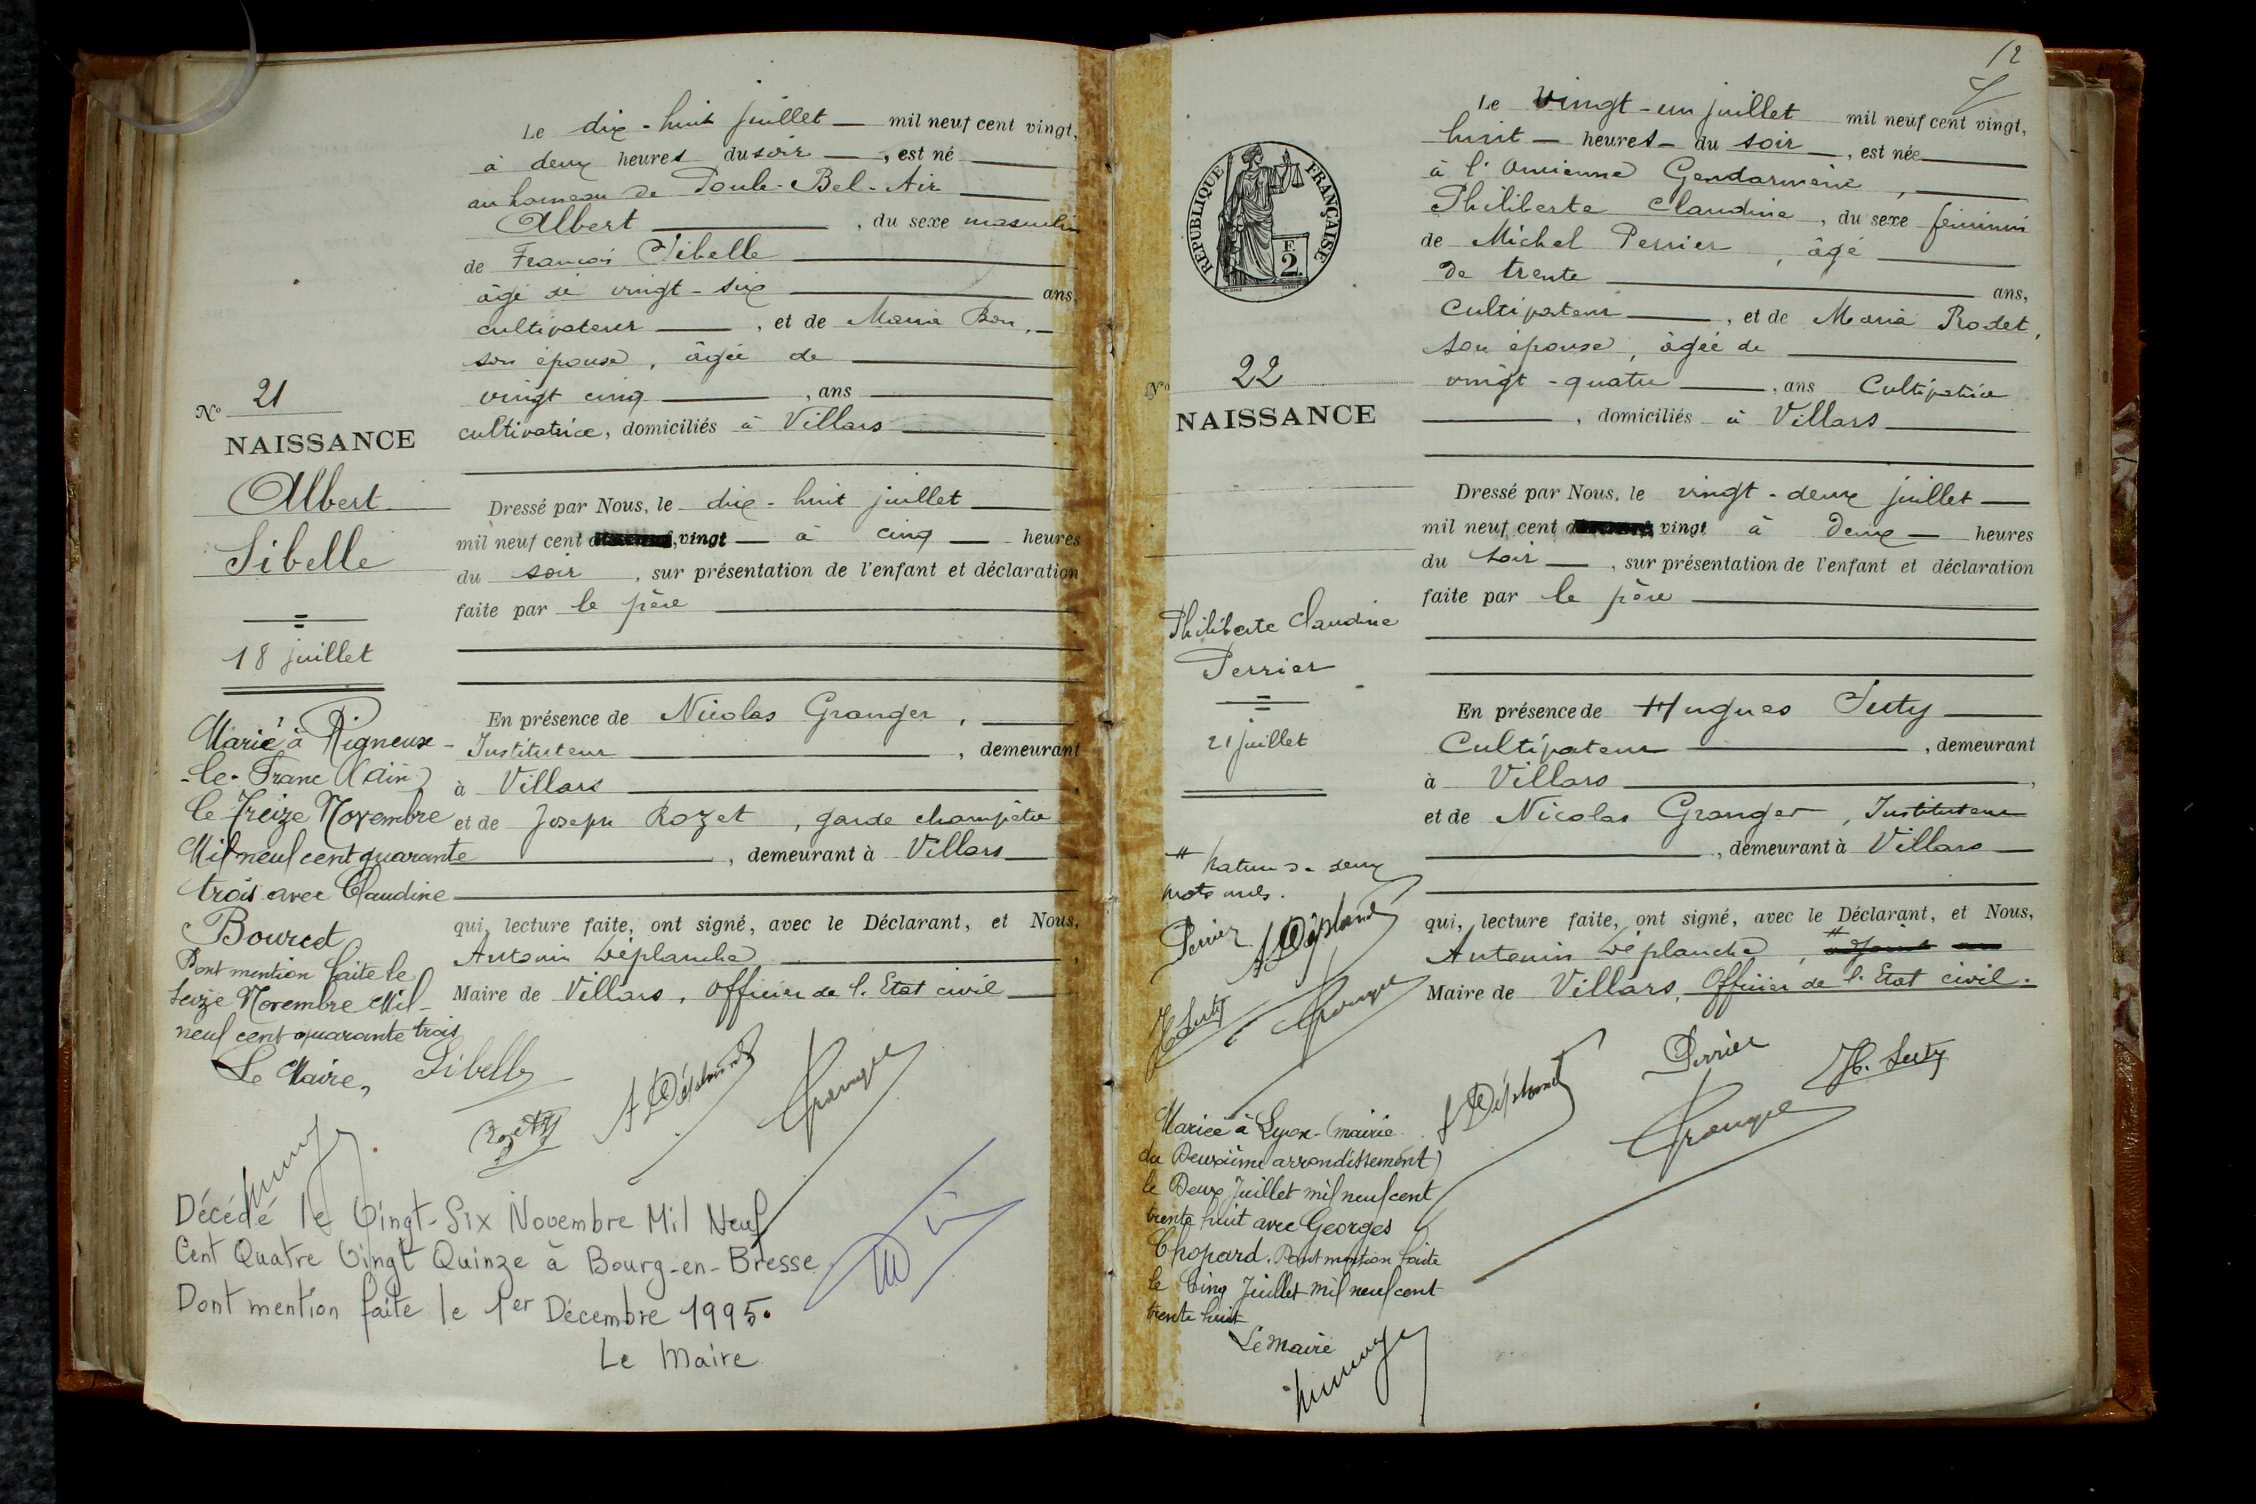 Le dix-huit juillet — mil neuf cent vingt,
à deux heures du soir —, est né
au hameau de Poule-Bel-Air
Albert, du sexe masculin
de François Sibelle
âgé de vingt-six ans,
cultivateur —, et de Maria Bon, —
son épouse, âgée de
vingt cinq —, ans
cultivatrice, domiciliés à Villars
N° 21
NAISSANCE
Albert
Sibelle
18 juillet
Dressé par Nous, le dix-huit juillet
mil neuf cent vingt — à cinq — heures
du soir, sur présentation de l'enfant et déclaration
faite par le père
En présence de Nicolas Granger,
Instituteur, demeurant
à Villars
et de Joseph Rozet, garde champêtre
, demeurant à Villars
qui, lecture faite, ont signé, avec le Déclarant, et Nous,
Antonin Déplanche
Maire de Villars, Officier de l'Etat civil
Marié à Rigneux-
-le-Franc (Ain)
le Treize Novembre
Mil neuf cent quarante
trois avec Claudine
Bourcet
Dont mention faite le
Seize Novembre Mil-
neuf cent quarante trois
Le Maire,
Sibelle
Rozet
A Déplanche
Granger
Décédé le Vingt-Six Novembre Mil Neuf
Cent Quatre Vingt Quinze à Bourg-en-Bresse
Dont mention faite le 1er Décembre 1995.
Le Maire
12
Le Vingt-un juillet mil neuf cent vingt,
huit — heures — du soir —, est née
à l'ancienne Gendarmerie,
Philiberte Claudine, du sexe féminin
de Michel Perrier, âgé
de trente ans,
Cultivateur —, et de Maria Rodet,
son épouse, âgée de
vingt-quatre —, ans Cultivatrice
, domiciliés à Villars
RÉPUBLIQUE FRANÇAISE
F.
2
N° 22
NAISSANCE
Philiberte Claudine
Perrier
21 juillet
Dressé par Nous, le vingt-deux juillet
mil neuf cent vingt à deux — heures
du soir —, sur présentation de l'enfant et déclaration
faite par le père
En présence de Hugues Suty
Cultivateur, demeurant
à Villars,
et de Nicolas Granger, Instituteur
, demeurant à Villars
qui, lecture faite, ont signé, avec le Déclarant, et Nous,
Antonin Déplanche,
Maire de Villars, Officier de l'Etat civil.
de deux
mots nuls.
Perrier
A Déplanche
H Suty
Granger
A Déplanche
Perrier
H. Suty
Granger
Mariée à Lyon (mairie
du Deuxième arrondissement)
le Deux Juillet mil neuf cent
trente huit avec Georges
Chopard. Dont mention faite
le Cinq Juillet mil neuf cent
trente huit
Le Maire